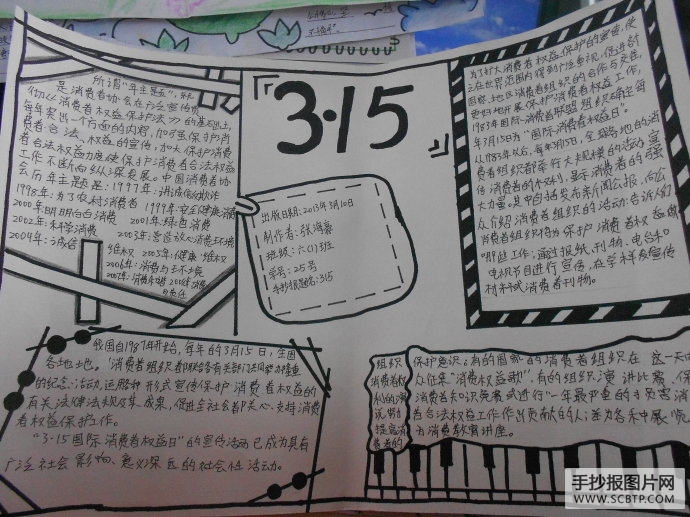 所谓"年主题",就
是消费者协会在广泛宣传贯
彻《消费者权益保护法》的基础上,
每年突出一个方面的内容,加强保护消
费者合法权益的宣传,加大保护消费
者合法权益力度,使保护消费者合法权益
工作不断向纵深发展。中国消费者协
会历年主题是:1997年:讲诚信反欺诈
1998年:为了农村消费者 1999年:安全健康消费
2000年明明白白消费 2001年:绿色消费
2002年:科学消费 2003年:营造放心消费环境
2004年:诚信 维权 2005年:健康·维权
2006年:消费与环境
2007年:消费和谐
3·15
出版日期:2013年3月10日
制作者:张海蓉
班级:六(1)班
学号:25号
手抄报题名:3.15
为了扩大消费者权益保护的宣传,使
之在世界范围内得到广泛重视,促进各
国家、地区消费者组织的合作与交往,
更好地开展保护消费者权益工作,
1983年国际消费者联盟组织确定每
年3月15日为"国际消费者权益日"。
从1983年以后,每年3月15日,全球各地的消
费者组织都举行大规模的活动宣
传消费者的权利,显示消费者的强
大力量。其中包括发布新闻公报,向公
众介绍消费者组织的活动:告诉人们
消费者组织将为保护消费者权益做
哪些工作;通过报纸、刊物、电台和
电视节目进行宣传,在学科发宣传
材料或消费者刊物。
我国自1987年开始,每年的3月15日,全国
各地地。消费者组织都联合各有关部门共同举办隆重
的纪念活动,运用各种形式宣传保护消费者权益的
有关法律法规及其成果,促进全社会都关心、支持消费
者权益保护工作。
"3·15国际消费者权益日"的宣传活动已成为具有
广泛社会影响、意义深远的社会性活动。
组织
消费者权
利的演
说,努力
提高消
费者的
保护意识。有的国家的消费者组织在这一天向
众征集"消费权益歌"。有的组织演讲比赛、保
消费者知识竞赛或进行"一年最严重的
者合法权益工作作出贡献的人;
为消费教育讲座。
手抄报图片网
WWW.SCBTP.COM